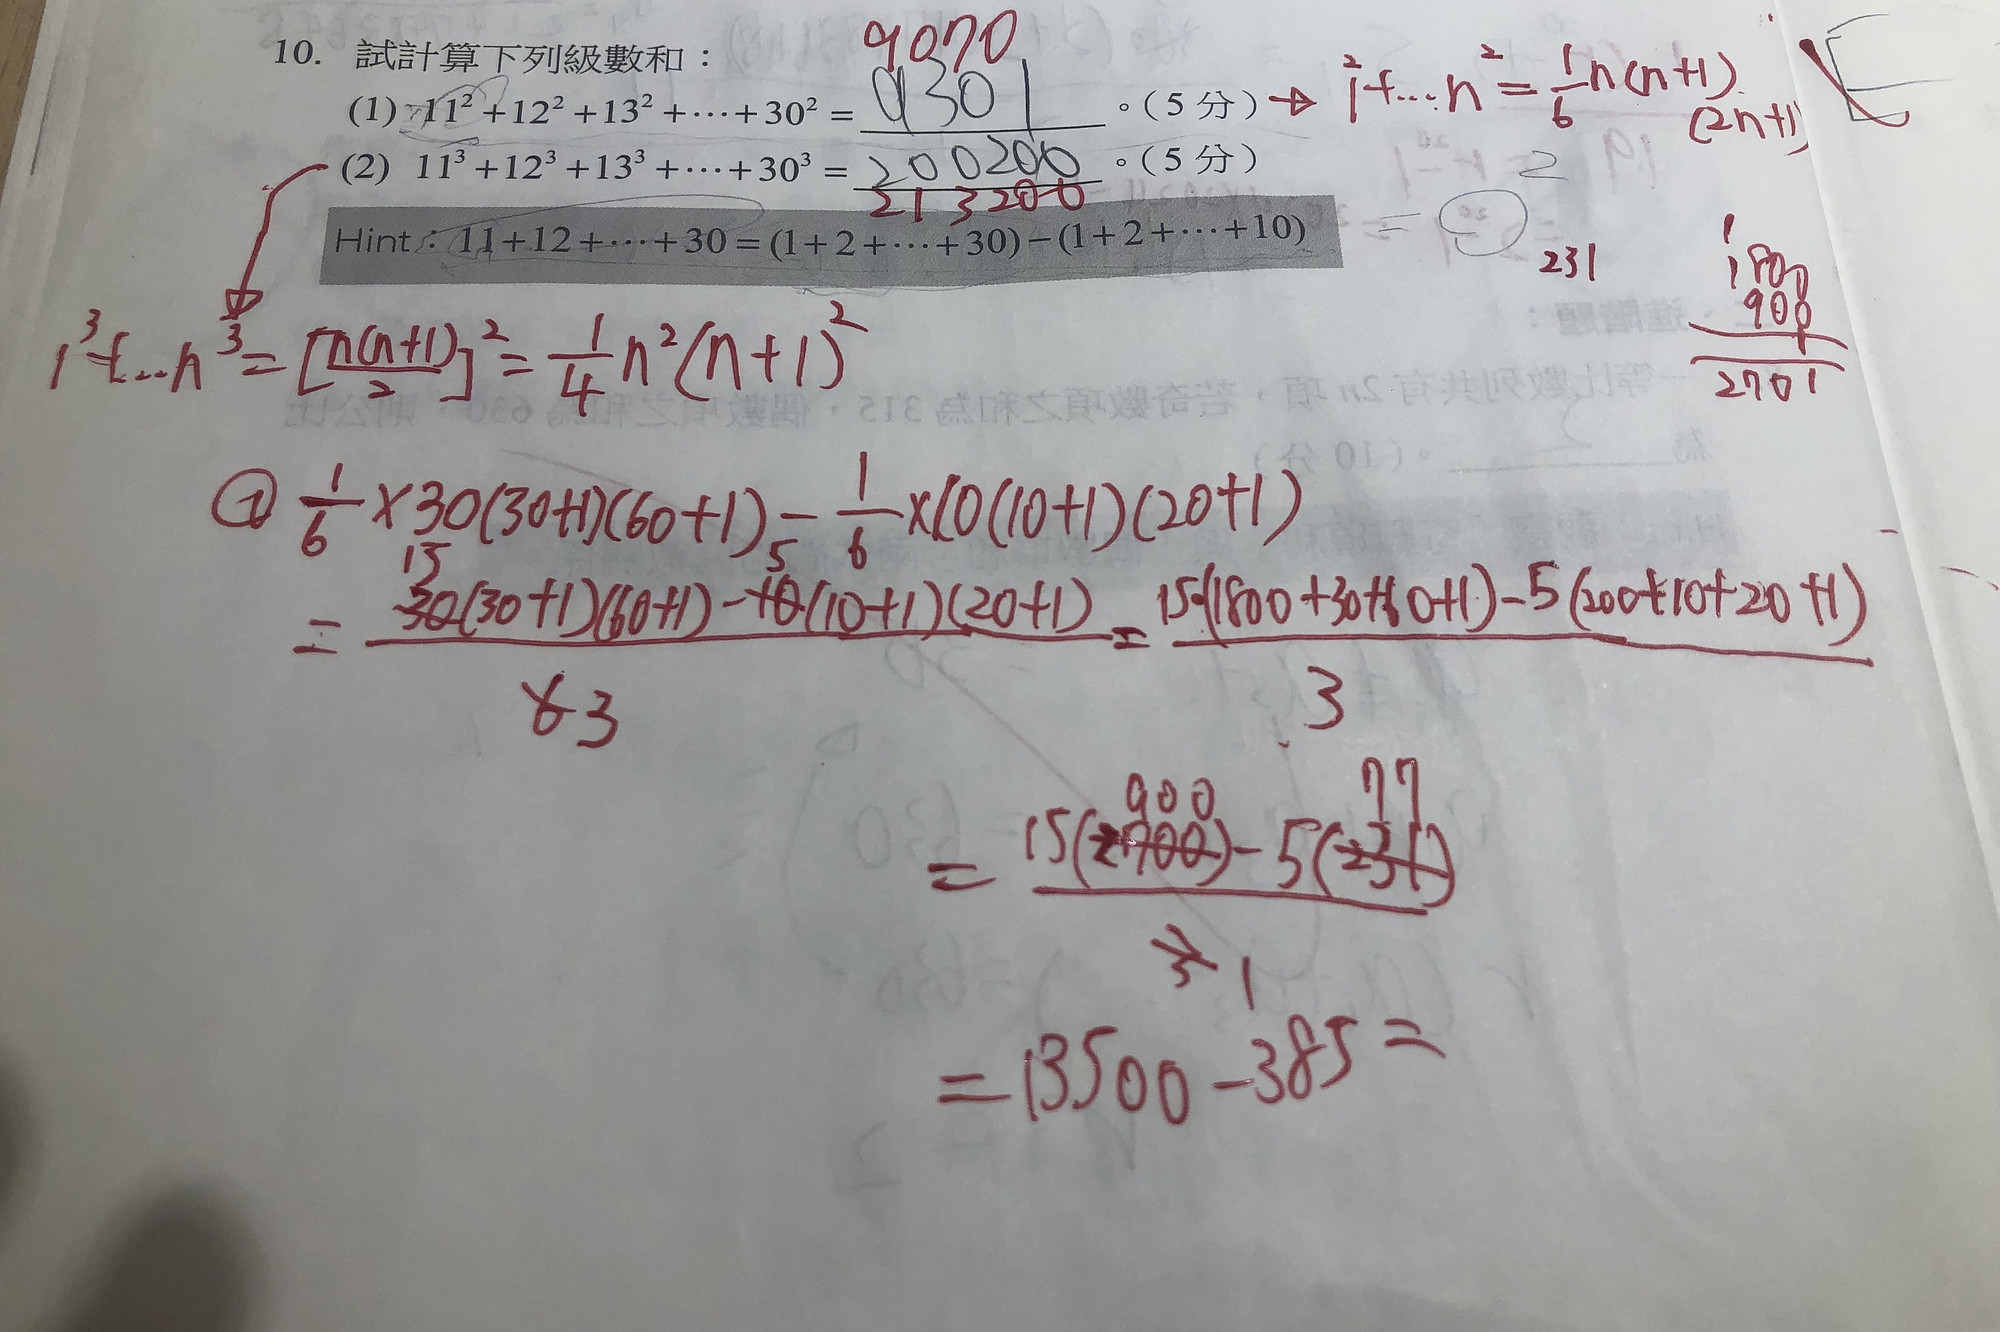 10. 試計算下列級數和：
9070
(1) 11²+12²+13²+⋯+30²= 9301 。(5分) → 1²+...n²=1/6 n(n+1)(2n+1)
(2) 11³+12³+13³+⋯+30³= 200200 。(5分)
213200
Hint：11+12+⋯+30=(1+2+⋯+30)−(1+2+⋯+10)
231
1800
900
1
2701
1³+...n³=[n(n+1)/2]²=1/4 n²(n+1)²
① 1/6 ×30(30+1)(60+1)−1/6 ×10(10+1)(20+1)
15 5
= 30(30+1)(60+1)−10(10+1)(20+1) / 6 3 = 15(1800+30+60+1)−5(200+10+20+1) / 3
900 77
= 15(2700)−5(231) / 3 1
=13500−385=